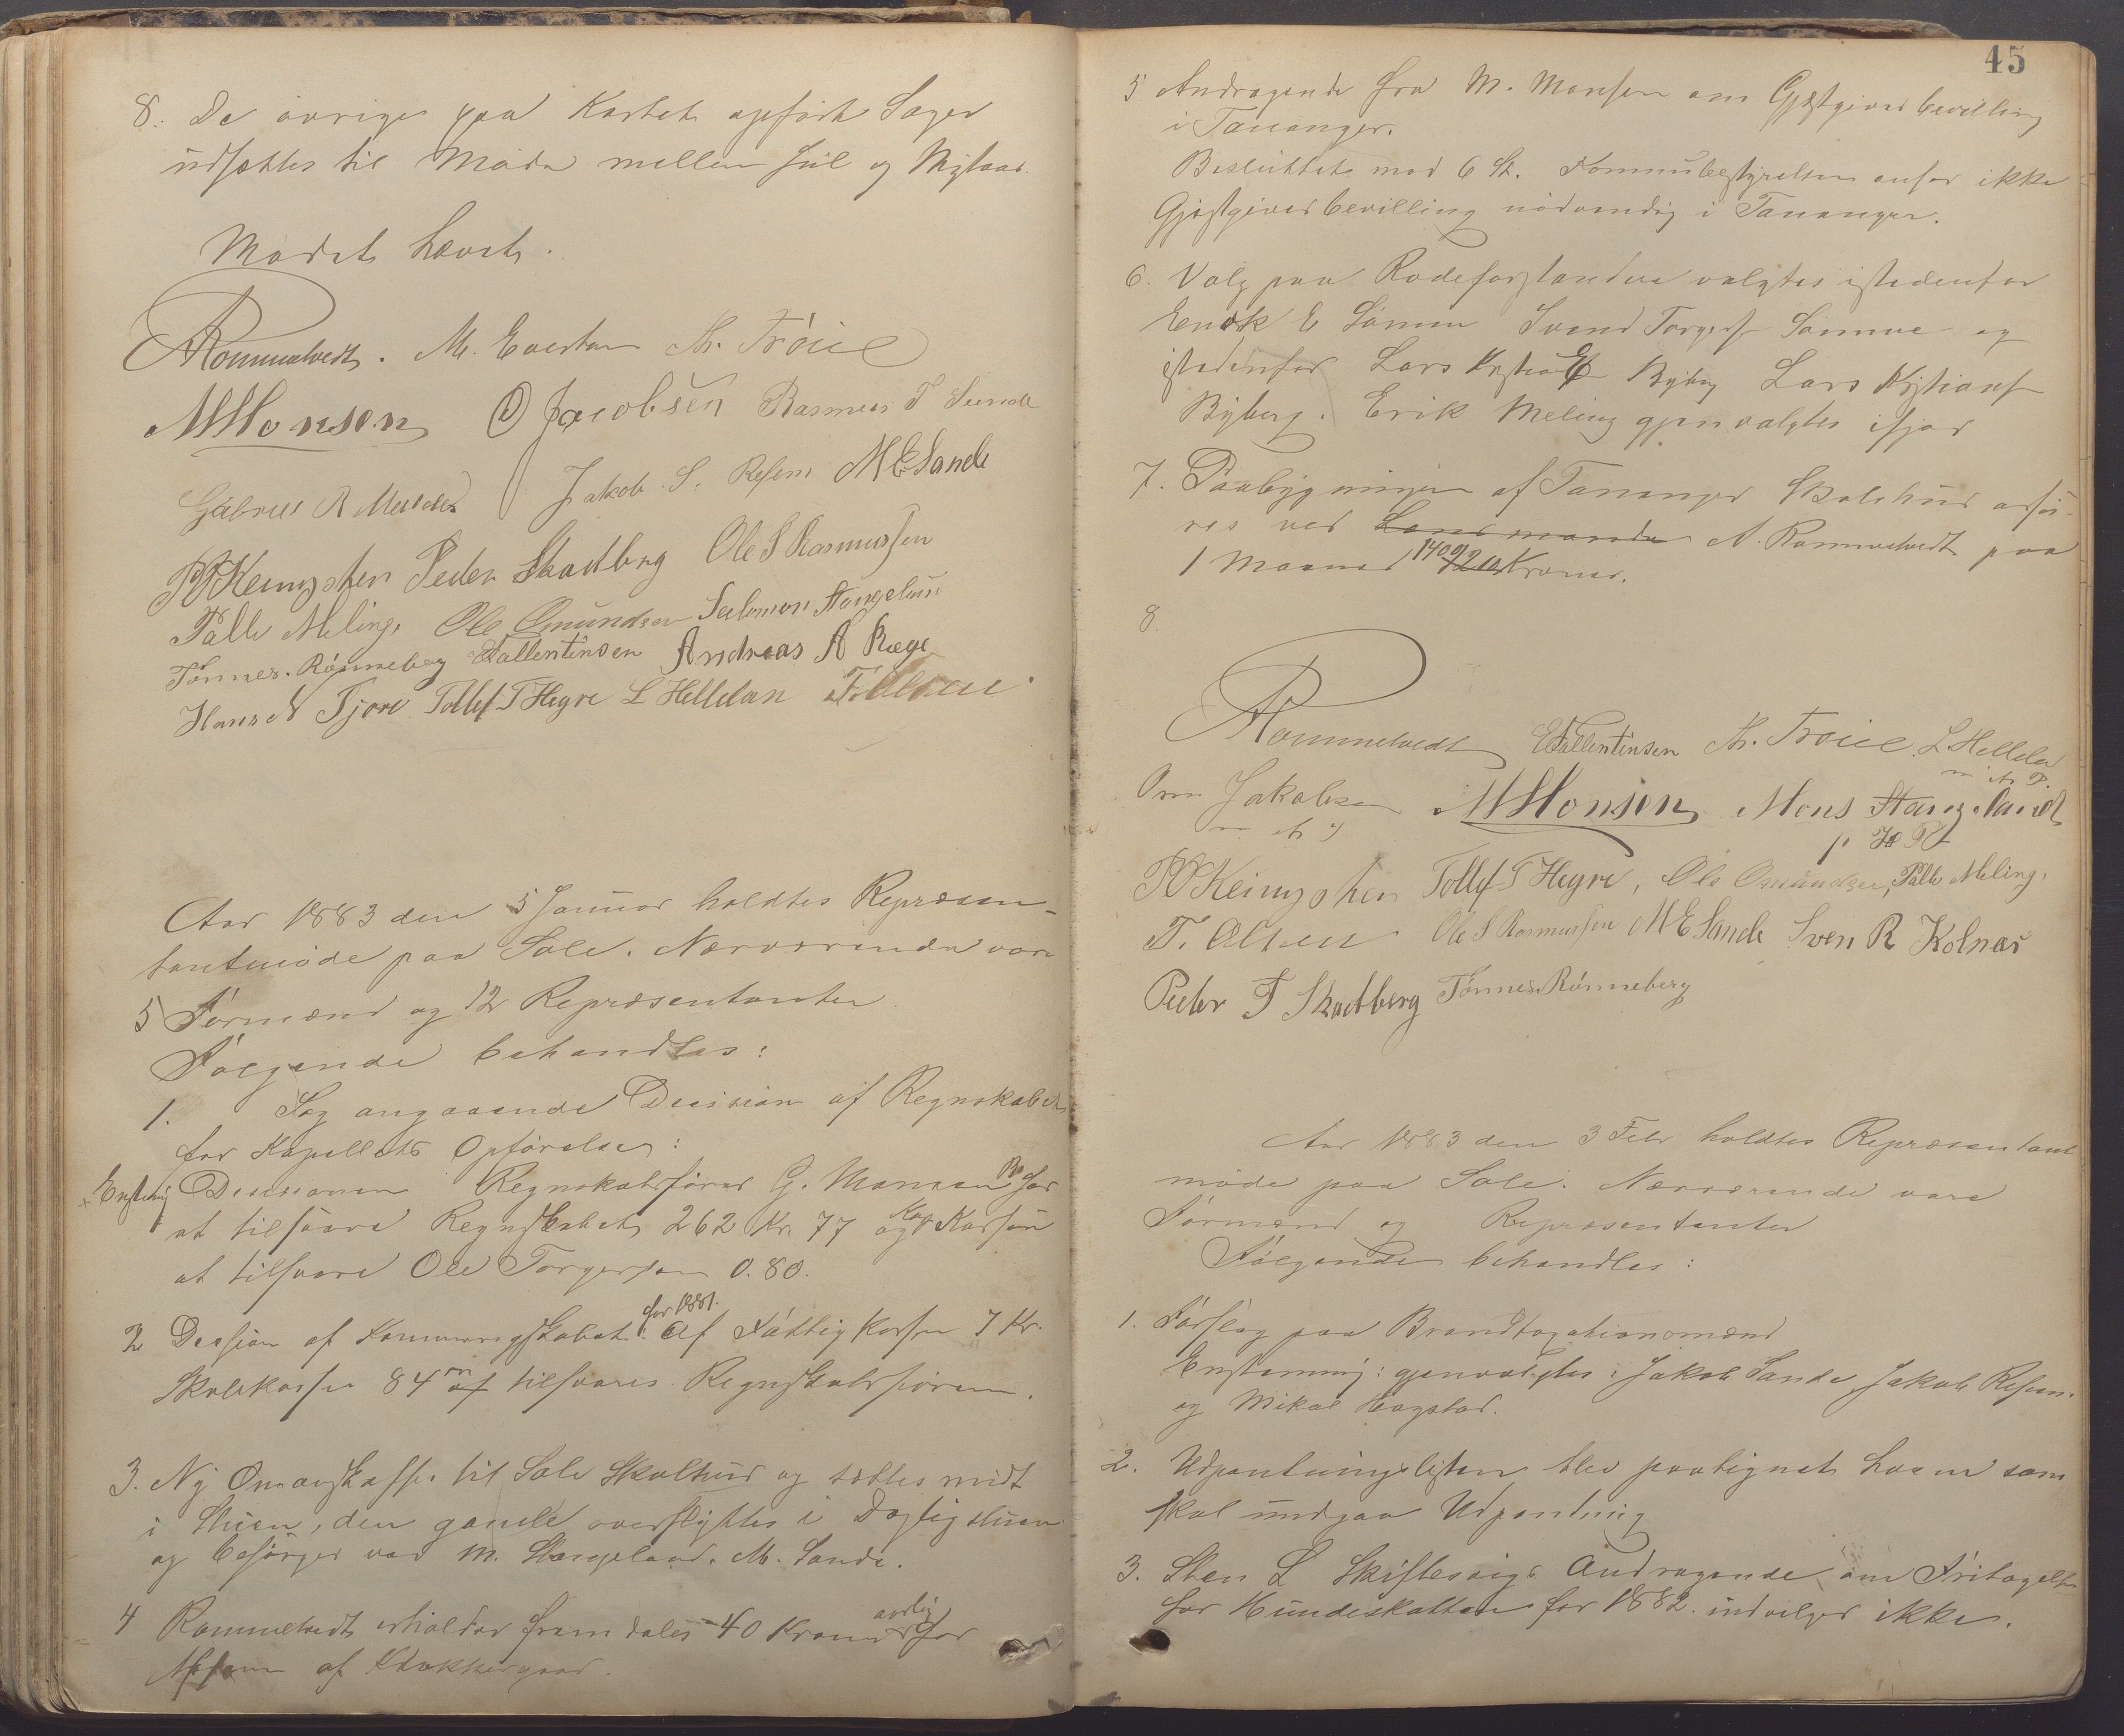 8. De øvrige paa Kartet opførte Sager
udsættes til Møde mellem Jul og Nytaar.
Mødet hævet.
ARommetvedt. M. Evertsen Th. Trøice
MMonsen O Jacobsen Rasmus T Sunde
Gabriel A Jakob S. Ræsem M E Sande
Peder Skadberg Ole S Rasmussen
Palle Meling, Ole Omundsen Salomon Stangelan
Tønnes. Rønneberg EFallentinsen Andreas A Ræge
Hans A Tjore Tollef T Hegre L Helleland T. Olsen
Aar 1883 den 5 Januar holdtes Repræsen-
tantmøde paa Sole. Nærværende vare
5 Formænd og 12 Repræsentanter
Følgende behandles:
1. Sag angaaende Decision af Regnskabet
for Kapellets Opførelse:
+ Enstemig Decisionen Regnskabsfører G. Monsen for
at tilsvare Regnskabet 262 Kr. 77 og
at tilsvare Ole Torgersen 0.80.
2 Desision af Kommuneregnskabet for 1881. Af Fattigkassen 7 Kr.
Skolekassen 84 tilsvares Regnskabsføreren.
3. Ny Ovn anskaffes til Sole Skolhus og sættes midt
i Stuen, den gamle overflyttes i Dagligstuen
og besørges ved M. Stangeland. M. Sande.
4 Rommetvedt erholder fremdeles 40 Kroner aarlig for
af Klokkergaard.
45
5 Andragende fra M. Monsen om Gjæstgiverbevilling
i Tananger.
Besluttet mod 6 St. Kommunebestyrelsen anser ikke
Gjæstgiverbevilling nødvendig i Tananger.
6. Valg paa Rodeforstandere valgtes istedenfor
Enok E Sømme Svend Torgersen Sømme og
istedenfor Lars Byberg Lars Kristians
Byberg. Erik Meling gjenvalgtes ifjor
7. Paabygningen af Tananger Skolehus udfø-
res ved Lensmanden A. Rommetvedt paa
1 Maaned 140 Kroner.
8.
ARommetvedt EFallentinsen Th. Trøice L Hellelan
m. p. P.
Jakobsen MMonsen Mons Stangeland
m p P
Tollef T Hegre, Ole Omundsen, Palle Meling,
T. Olsen Ole S Rasmussen M E Sande Sven R Kolnæs
Peder T Skadberg Tønnes. Rønneberg
Aar 1883 den 3 Febr holdtes Repræsentant
møde paa Sole. Nærværende vare
Formænd og Repræsentanter
Følgende behandles:
1. Forslag paa Brandtaxationsmænd
Enstemmig: gjenvalgtes: Jakob Sande Jakob Ræsem.
og Mikal Hagstad.
2. Udpantningslisten blev paategnet hvem som
skal undgaa Udpantning
3. Sten L Skiftesvigs Andragende om Fritagelse
for Hundeskatten for 1882 indvilges ikke.